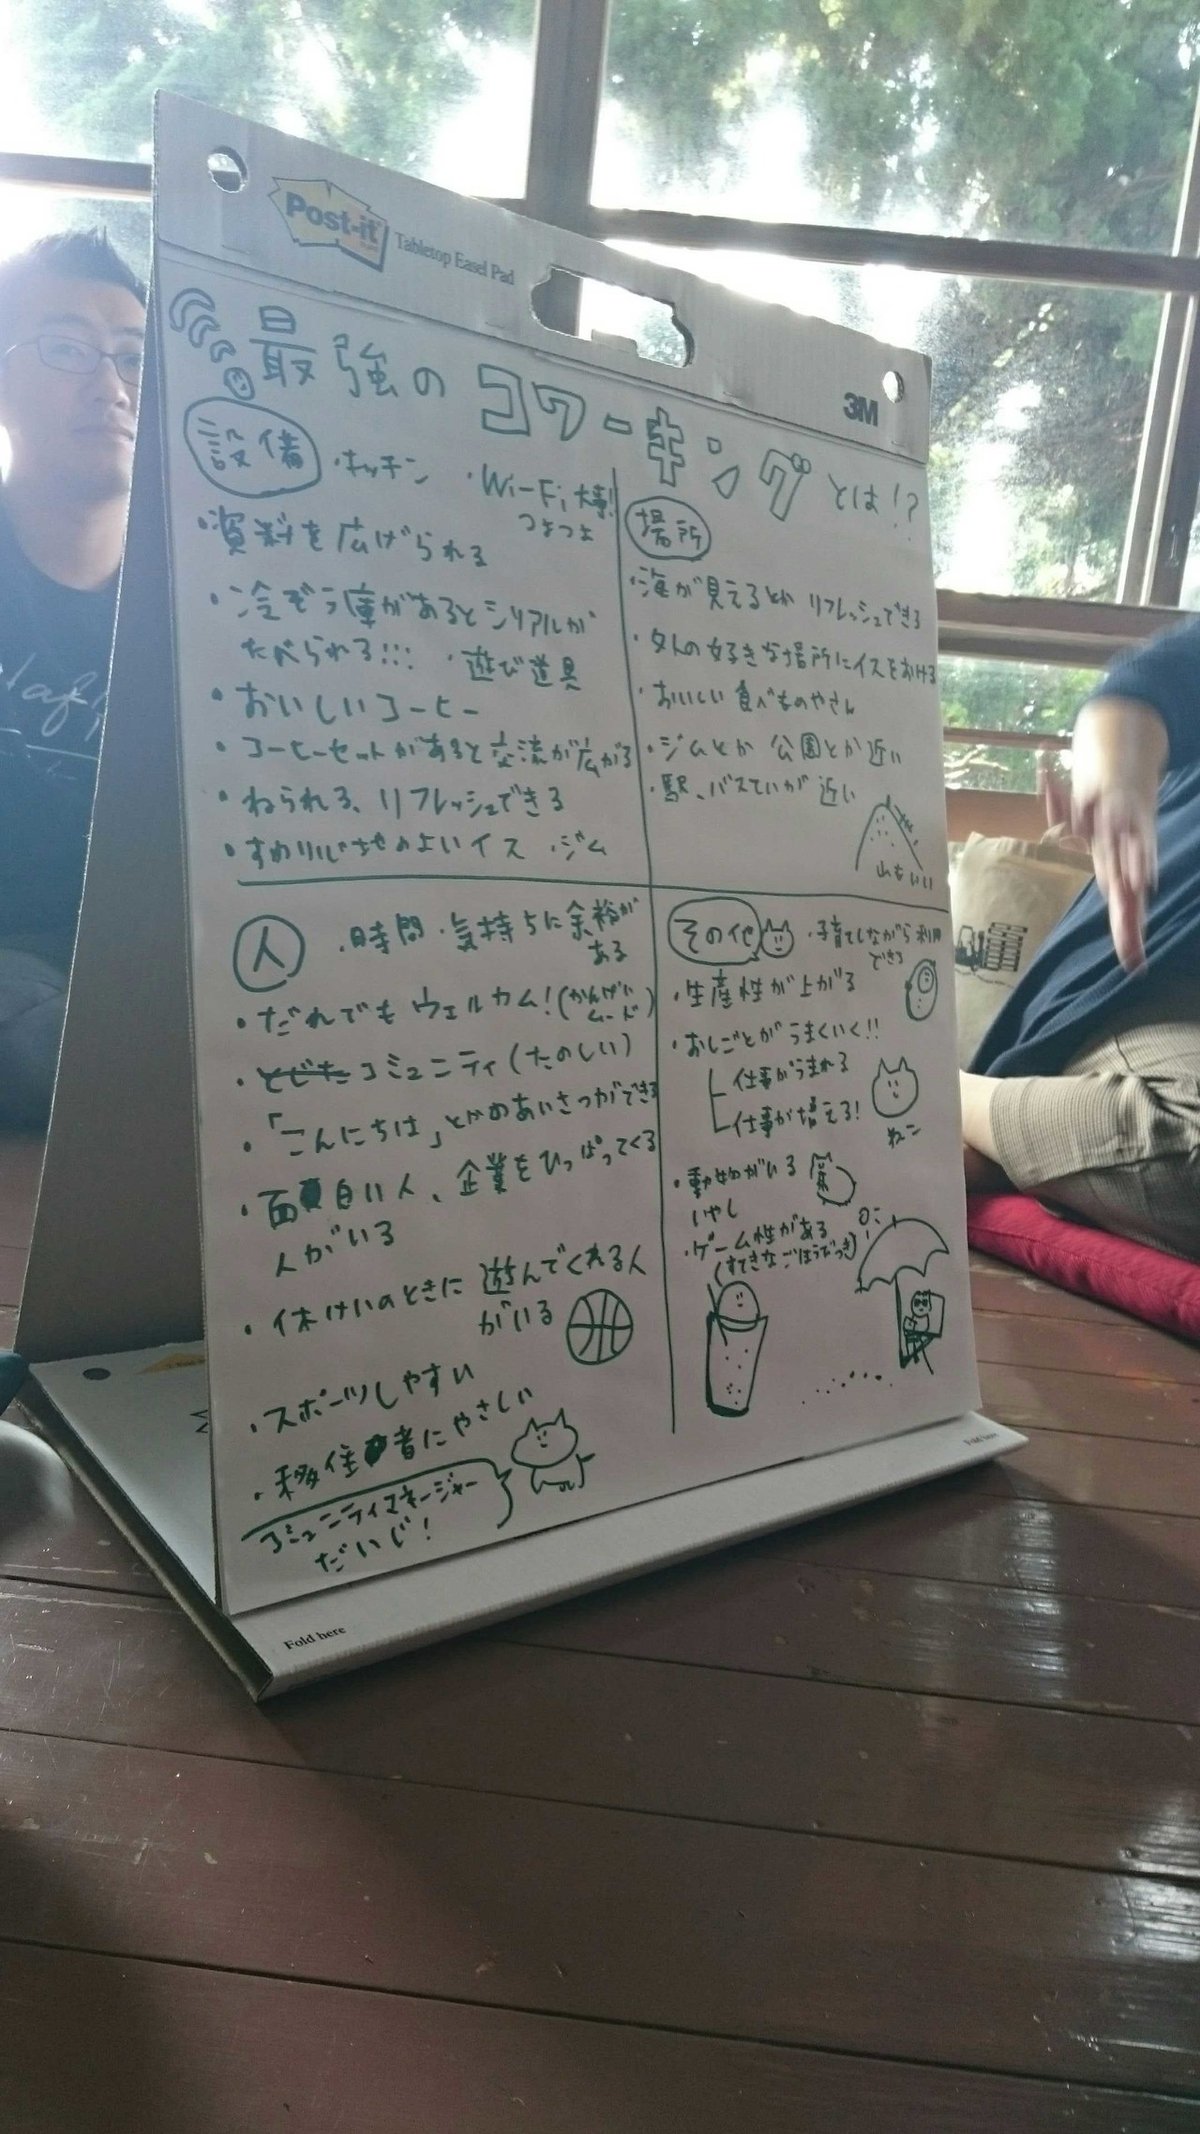 Post-it
Tabletop Easel Pad
3M
最強のコワーキングとは!?
設備
・キッチン ・Wi-Fi大事!
つよつよ
・資料を広げられる
・冷ぞう庫があるとシリアルが
たべられる!!! ・遊び道具
・おいしいコーヒー
・コーヒーセットがあると交流が広がる
・ねられる、リフレッシュできる
・すわり心地のよいイス ・ジム
場所
・海が見えるとか リフレッシュできる
・好きな場所にイスをおける
・おいしい食べものやさん
・ジムとか 公園とか近い
・駅、バスていが近い
山もいい
人
・時間・気持ちに余裕が
ある
・だれでもウェルカム!(かんげい
ムード)
・とじた コミュニティ(たのしい)
・「こんにちは」とかのあいさつができる
・面白い人、企業をひっぱってくる
人がいる
・休けいのときに 遊んでくれる人
がいる
・スポーツしやすい
・移住者にやさしい
コミュニティマネージャー
だいじ!
その他
・子育てしながら利用
できる
・生産性が上がる
・おしごとがうまくいく!!
仕事がうまれる
仕事が増える!
ねこ
・動物がいる
いやし
・ゲーム性がある
(すてきなごほうびつき)
Fold here
Fold here